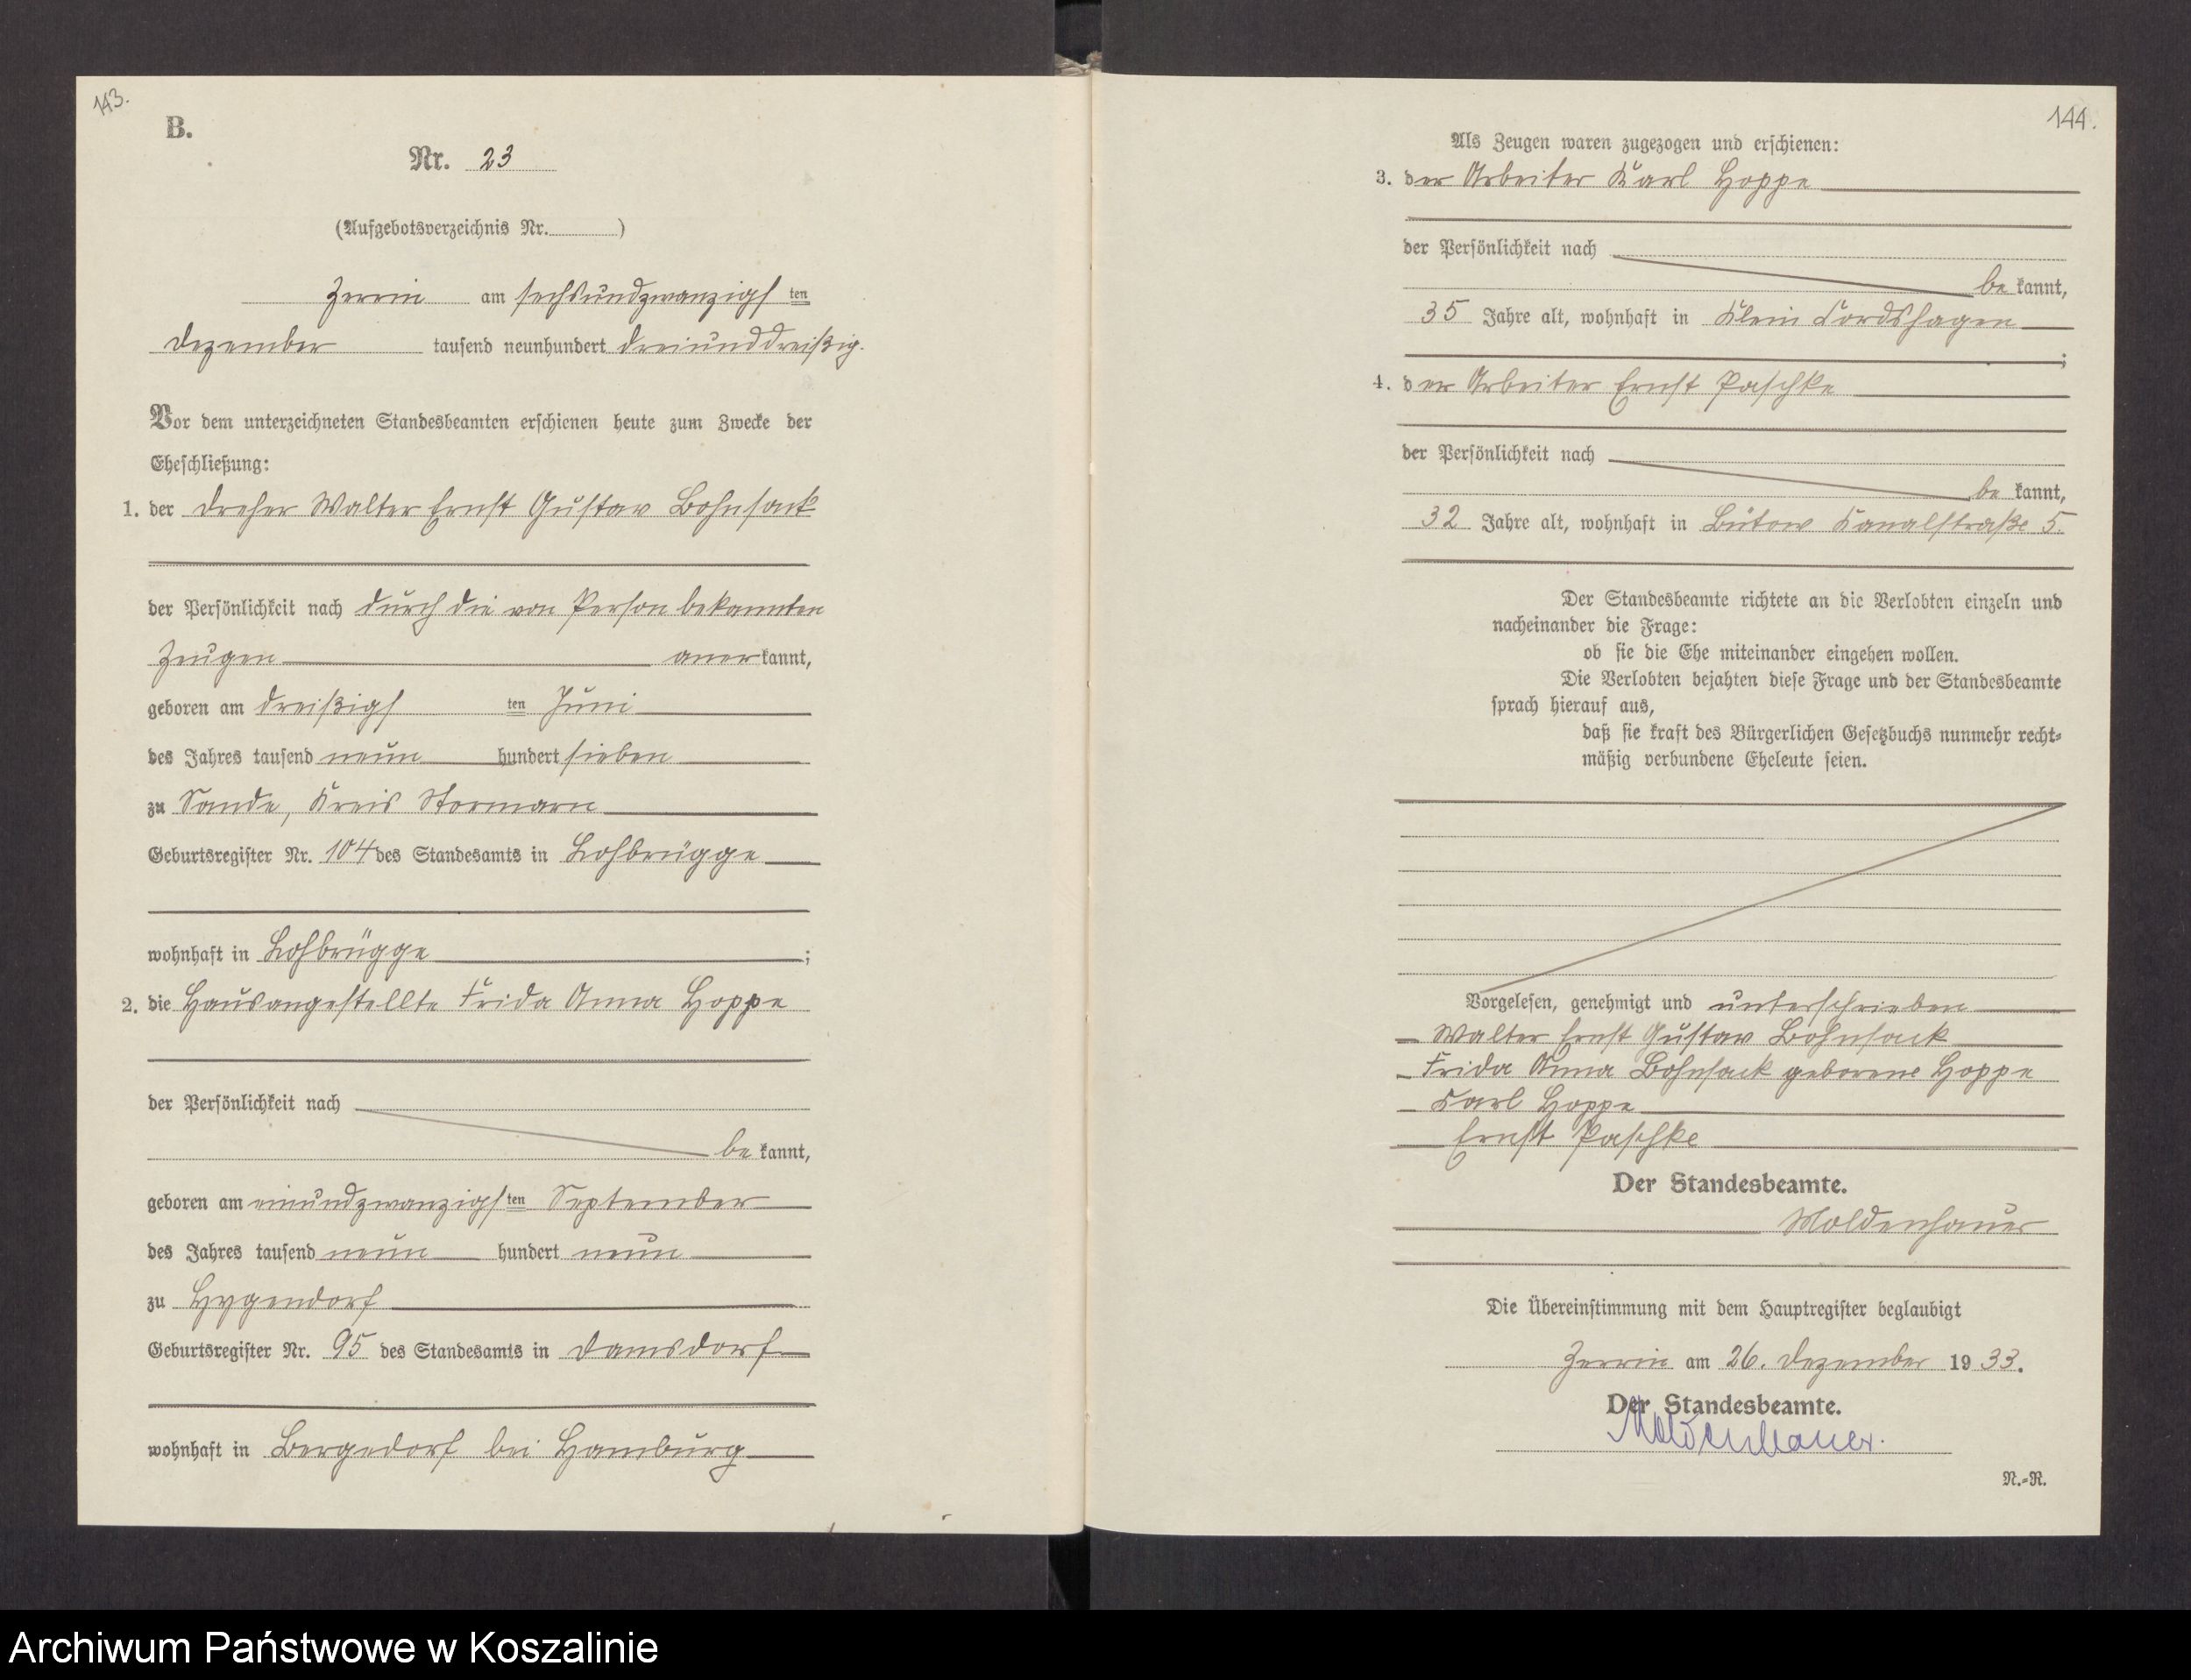 143.
B.
Nr. 23
(Aufgebotsverzeichnis Nr. )
Zerrin am sechsundzwanzigsten
Dezember tausend neunhundert dreiunddreißig.
Vor dem unterzeichneten Standesbeamten erschienen heute zum Zwecke der
Eheschließung:
1. der Dreher Walter Ernst Gustav Bohnsack
der Persönlichkeit nach durch die von Person bekannten
Zeugen anerkannt,
geboren am dreißigsten Juni
des Jahres tausend neun hundert sieben
zu Sande, Kreis Stormarn
Geburtsregister Nr. 104 des Standesamts in Lohbrügge
wohnhaft in Lohbrügge;
2. die Hausangestellte Frida Anna Hoppe
der Persönlichkeit nach
bekannt,
geboren am einundzwanzigsten September
des Jahres tausend neun hundert neun
zu Hygendorf
Geburtsregister Nr. 95 des Standesamts in Damsdorf
wohnhaft in Bergedorf bei Hamburg
144.
Als Zeugen waren zugezogen und erschienen:
3. der Arbeiter Karl Hoppe
der Persönlichkeit nach
bekannt,
35 Jahre alt, wohnhaft in Klein Cordshagen
;
4. der Arbeiter Ernst Paschke
der Persönlichkeit nach
bekannt,
32 Jahre alt, wohnhaft in Bütow Kanalstraße 5.
Der Standesbeamte richtete an die Verlobten einzeln und
nacheinander die Frage:
ob sie die Ehe miteinander eingehen wollen.
Die Verlobten bejahten diese Frage und der Standesbeamte
sprach hierauf aus,
daß sie kraft des Bürgerlichen Gesetzbuchs nunmehr recht-
mäßig verbundene Eheleute seien.
Vorgelesen, genehmigt und unterschrieben
Walter Ernst Gustav Bohnsack
Frida Anna Bohnsack geborene Hoppe
Karl Hoppe
Ernst Paschke
Der Standesbeamte.
Moldenhauer
Die Übereinstimmung mit dem Hauptregister beglaubigt
Zerrin am 26. Dezember 1933.
Der Standesbeamte.
Moldenhauer.
N.-R.
Archiwum Państwowe w Koszalinie